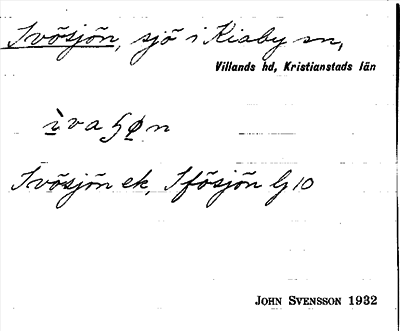 Ivösjön, sjö i Kiaby sn,
Villands hd, Kristianstads län
ìvaɧøn
Ivösjön ek, Ifösjön Gj 10
JOHN SVENSSON 1932